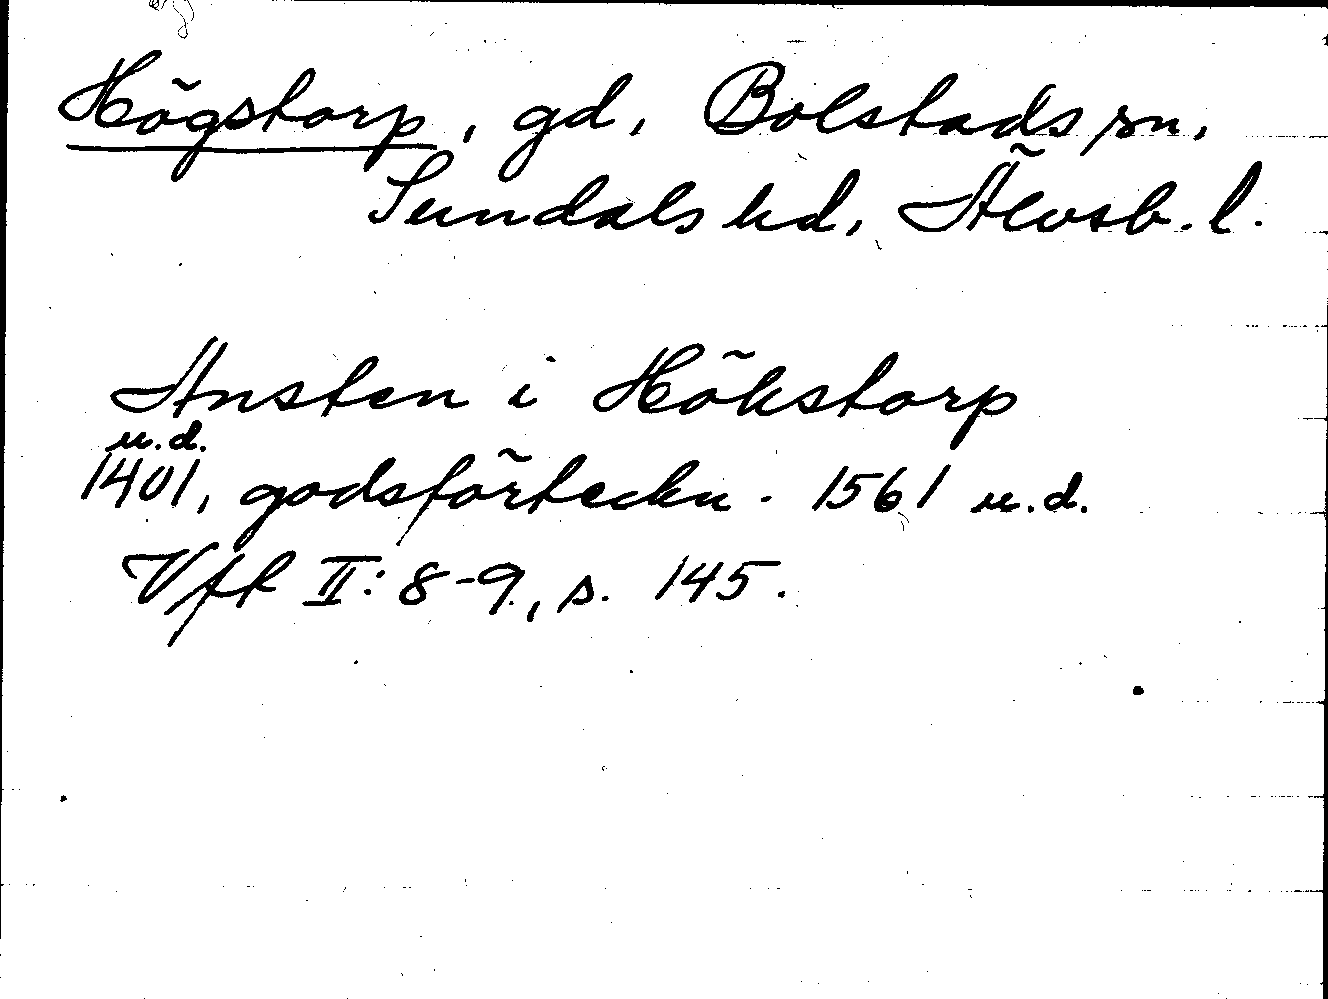 Högstorp, gd, Bolstads sn,
Sundals hd, Älvsb. l.
Ansten i Hökstorp
u.d.
1401, godsförteckn. 1561 u.d.
Vft II: 8-9, s. 145.